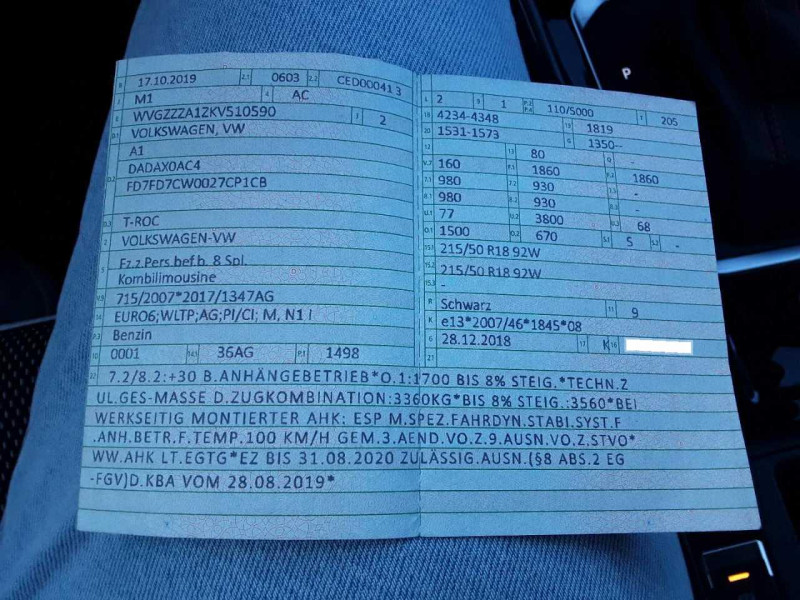 B 17.10.2019 2.1 0603 2.2 CED00041 3
J M1 4 AC
E WVGZZZA1ZKV510590 3 2
D.1 VOLKSWAGEN, VW
D.2 A1
DADAX0AC4
FD7FD7CW0027CP1CB
D.3 T-ROC
2 VOLKSWAGEN-VW
5 Fz.z.Pers.bef.b. 8 Spl.
Kombilimousine
V.9 715/2007*2017/1347AG
14 EURO6;WLTP;AG;PI/CI; M, N1 I
P.3 Benzin
10 0001 14.1 36AG P.1 1498
L 2 9 1 P.2 P.4 110/5000 T 205
18 4234-4348 19 1819
20 1531-1573 G 1350--
12 - 13 80 Q -
V.7 160 F.1 1860 F.2 1860
7.1 980 7.2 930 7.3 -
8.1 980 8.2 930 8.3 -
U.1 77 U.2 3800 U.3 68
O.1 1500 O.2 670 S.1 5 S.2 -
15.1 215/50 R18 92W
15.2 215/50 R18 92W
15.3 -
R Schwarz 11 9
K e13*2007/46*1845*08
6 28.12.2018 17 K 16
21
22 7.2/8.2:+30 B.ANHÄNGEBETRIEB*O.1:1700 BIS 8% STEIG.*TECHN.Z
UL.GES-MASSE D.ZUGKOMBINATION:3360KG*BIS 8% STEIG.:3560*BEI
WERKSEITIG MONTIERTER AHK: ESP M.SPEZ.FAHRDYN.STABI.SYST.F
.ANH.BETR.F.TEMP.100 KM/H GEM.3.AEND.VO.Z.9.AUSN.VO.Z.STVO*
WW.AHK LT.EGTG*EZ BIS 31.08.2020 ZULÄSSIG.AUSN.(§8 ABS.2 EG
-FGV)D.KBA VOM 28.08.2019*
P